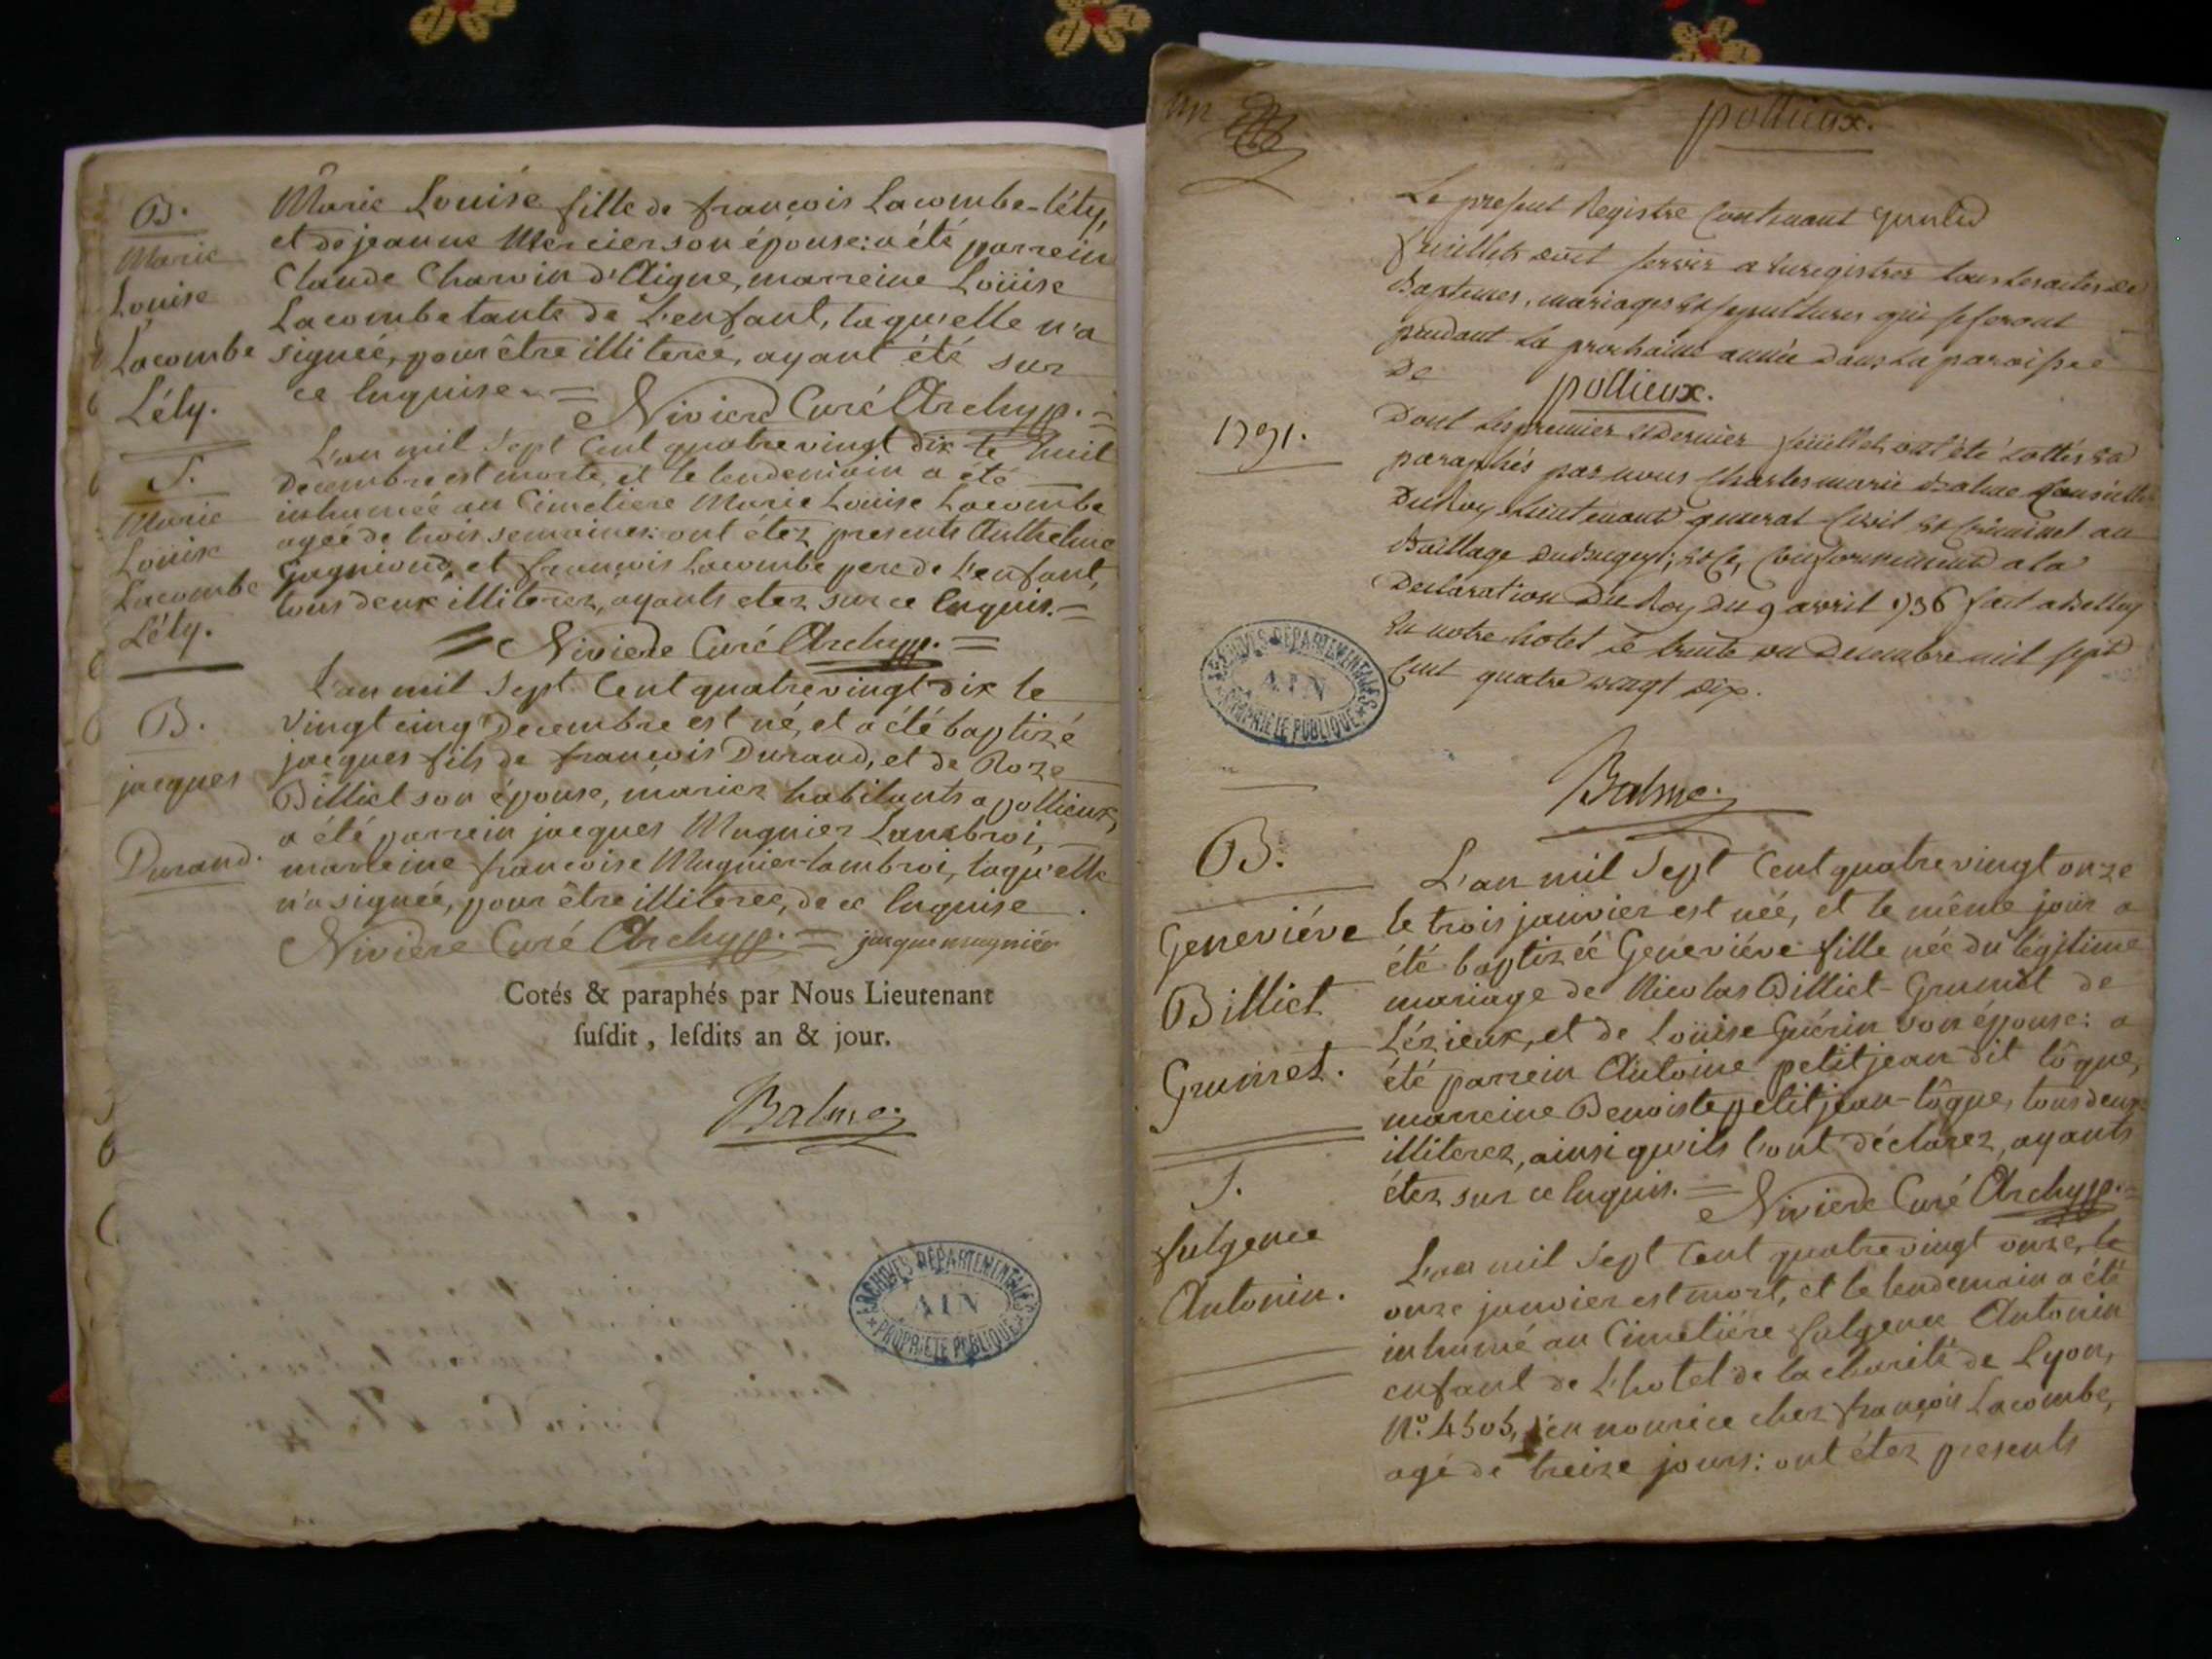 B.
Marie
Louise
Lacombe
Léty.
Marie Louise fille de françois Lacombe-léty,
et de jeanne Mercier son épouse: a été parrein
Claude Charvin d'Aigne, marreine Loüise
Lacombe tante de L'enfant, laqu'elle n'a
signée, pour être illiterée, ayant été sur
ce Enquise. = Niviere Curé Archyp. =
S.
Marie
Loüise
Lacombe
Léty.
L'an mil Sept Cent quatre vingt dix le huit
Decembre est morte, et le lendemain a été
inhumée au Cimetiere Marie Loüise Lacombe
agée de trois semaines: ont étez presents Anthelme
Gagnioud, et françois Lacombe pere de L'enfant,
tous deux illiterez, ayants etez sur ce Enquis. =
= Niviere Curé Archyp. =
B.
jacques
Durand.
L'an mil Sept Cent quatre vingt dix le
vingt cinq Decembre est né, et a été baptizé
jacques fils de françois Durand, et de Roze
Billiet son épouse, mariez habitants a pollieux,
a été parrein jacques Mugnier Lambroi,
marreine françoise Mugnier-lambroi, laqu'elle
n'a signée, pour être illiterée, de ce Enquise.
Niviere Curé Archyp. = jacque mugnier
Cotés & paraphés par Nous Lieutenant
suſdit, leſdits an & jour.
Balme
ARCHIVES DEPARTEMENTALES
AIN
* PROPRIETE PUBLIQUE *
pollieux.
Le present Registre Contenant
feuillets doit servir a enregistrer tous les actes de
Baptemes, mariages et sepultures qui se feront
pendant La prochaine année dans la paroisse
De pollieux.
1791.
Dont les premier et dernier feuillets ont été cottés et
paraphés par nous Charles marie Balme Conseiller
Du Roy Lieutenant general Civil et Criminel au
Baillage du Bugey; et ce, Conformement a la
Declaration Du Roy Du 9 avril 1736 fait a Belley
En notre hotel le trente un Decembre mil sept
Cent quatre vingt dix.
ARCHIVES DEPARTEMENTALES
AIN
* PROPRIETE PUBLIQUE *
Balme
B.
Geneviéve
Billiet
Grumet.
L'an mil Sept Cent quatre vingt onze
le trois janvier est née, et le même jour a
été baptizée Geneviéve fille née du légitime
mariage de Nicolas Billiet-Grumet de
Lézieux, et de Loüise Guérin son épouse: a
été parrein Antoine petitjean dit lôgue,
marreine Benoiste petitjean-lôgue, tous deux
illiterez, ainsi qu'ils l'ont déclarez, ayants
étez sur ce Enquis. = Niviere Curé Archyp. =
S.
fulgence
Antonin.
L'an mil Sept Cent quatre vingt onze, le
onze janvier est mort, et le lendemain a été
inhumé au Cimetiére fulgence Antonin
enfant de L'hotel de la charité de Lyon,
N.º 4505, en nourice chez françois Lacombe,
agé de treize jours: ont étez presents